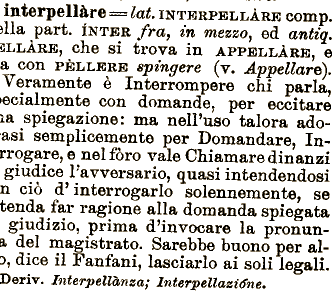 interpellàre=lat. INTERPELLÀRE comp.
ella part. ÍNTER fra, in mezzo, ed antiq.
ELLÀRE, che si trova in APPELLÀRE, e
a con PÈLLERE spingere (v. Appellare).
Veramente è Interrompere chi parla,
pecialmente con domande, per eccitare
na spiegazione: ma nell'uso talora ado-
rasi semplicemente per Domandare, In-
rrogare, e nel fòro vale Chiamare dinanzi
giudice l'avversario, quasi intendendosi
n ciò d'interrogarlo solennemente, se
tenda far ragione alla domanda spiegata
giudizio, prima d'invocare la pronun-
a del magistrato. Sarebbe buono per al-
o, dice il Fanfani, lasciarlo ai soli legali.
Deriv. Interpellànza; Interpellazióne.